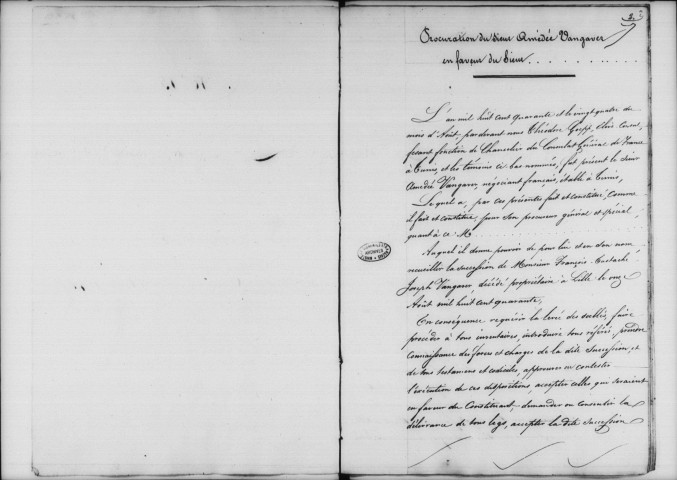 2.
Procuration du Sieur Amédée Vangaver
en faveur du Sieur . . . . . . . . . . . .
L'an mil huit cent quarante et le vingt quatre du
mois d'Août, pardevant nous Théodore Elève Consul,
fesant fonction de Chancelier du Consulat Général de France
à Tunis, et les témoins ci bas nommés, fut présent le Sieur
Amédée Vangaver, négociant français, établi à Tunis,
Lequel a, par ces présentes fait et constitué, comme
il fait et constitue, pour son procureur général et spécial,
quant à ce M.
Auquel il donne pouvoir de pour lui et en son nom,
recueillir la succession de Monsieur François Eustache
Joseph Vangaver, décédé propriétaire à Lille le onze
Août mil huit cent quarante,
En conséquence requérir la levée des scellés, faire
procéder à tous inventaires, introduire tous référés, prendre
connaissance des forces et charges de la dite succession, et
de tous testamens et codiciles, approuver ou contester
l'exécution de ces dispositions, accepter celles qui seraient
en faveur du Constituant, demander ou consentir la
délivrance de tous legs, accepter la dite succession